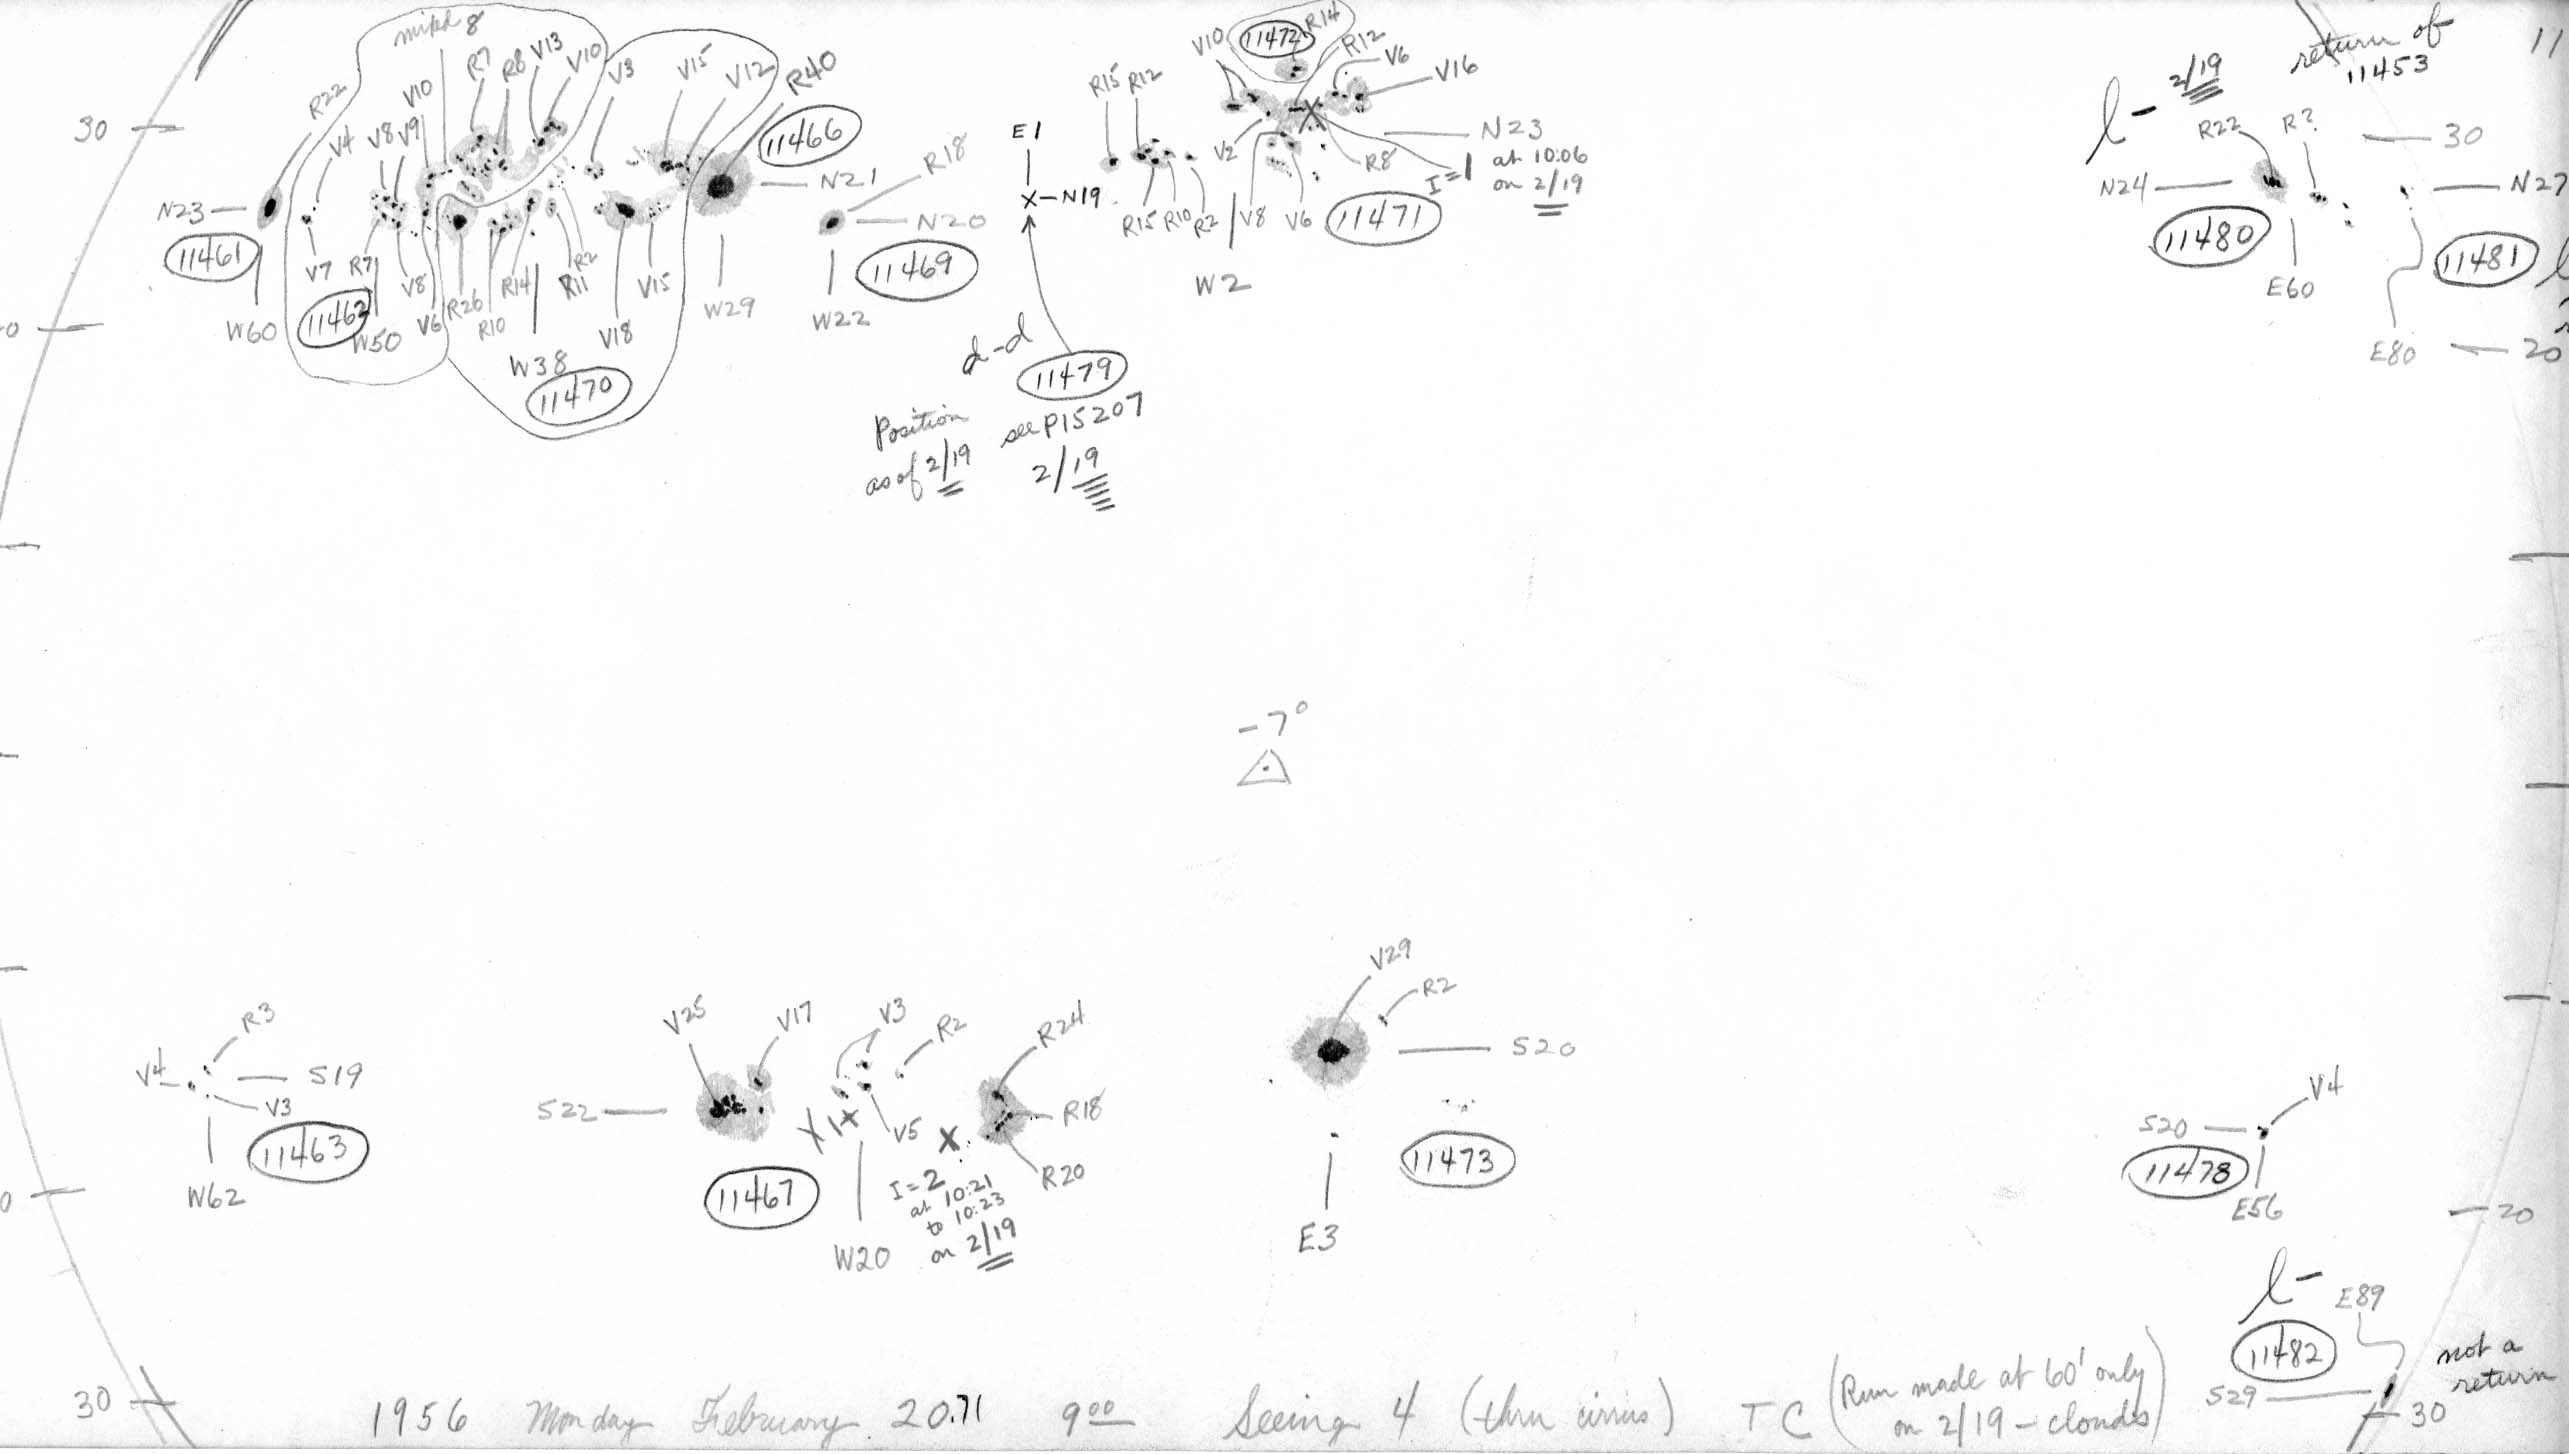 mixed 8
R7
R8
V13
V10
V3
V15
V12
R40
R22
V4
V8
V9
V10
30
11466
N21
R18
N20
N23
11461
W60
V7
R7
11462
W50
V8
V6
R26
R10
R14
R11
R2
W38
11470
V18
V15
W29
11469
W22
E1
X-N19
d-d
11479
Position
as of 2/19
see P15207
2/19
V10
11472
R14
R12
V6
V16
R15
R12
V2
R8
N23
I=1 at 10:06
on 2/19
R15
R10
R2
V8
V6
11471
W2
l- 2/19
return of
11453
11
R22
R?
30
N24
N27
11480
E60
11481
E80
20
0
-7°
R3
V4
S19
V3
11463
W62
V25
V17
V3
R2
R24
S22
V5
R18
R20
X 1 X
X
11467
W20
I=2
at 10:21
to 10:23
on 2/19
V29
R2
S20
11473
E3
V4
S20
11478
E56
0
20
l-
E89
11482
S29
not a
return
30
30
1956 Monday February 20.71 9 00 Seeing 4 (thru cirrus) TC (Run made at 60' only
on 2/19 - clouds)